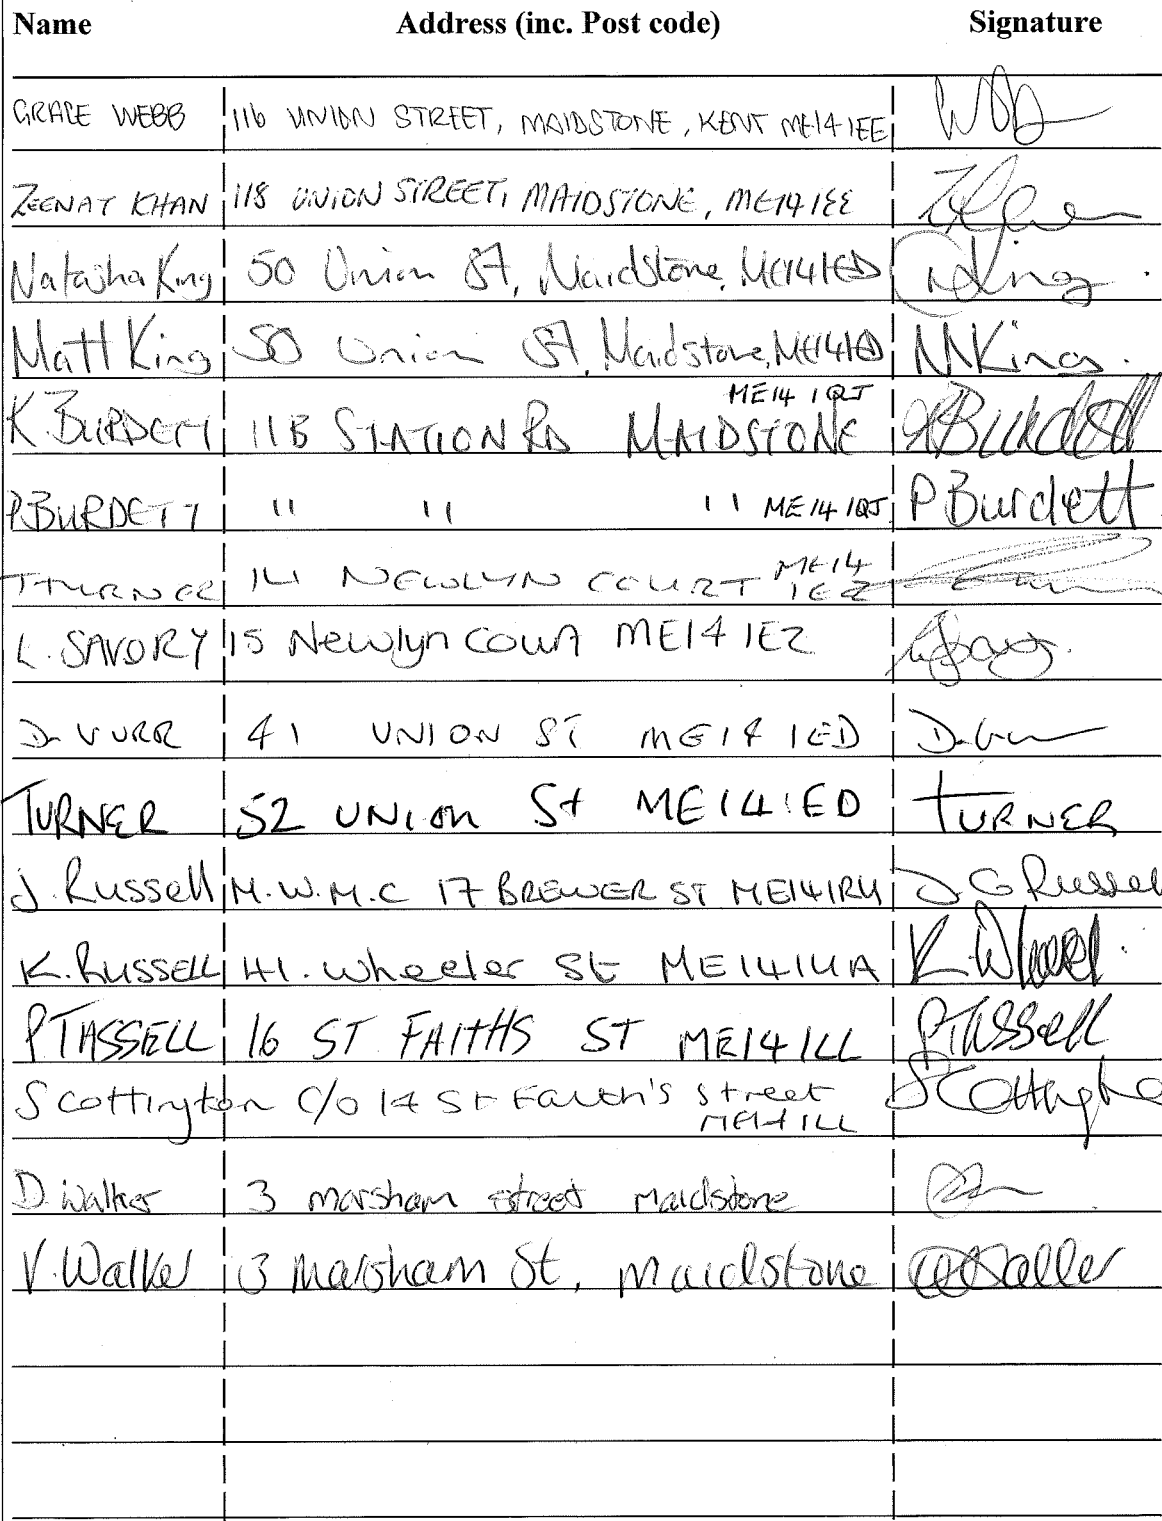 Name Address (inc. Post code) Signature
GRACE WEBB 116 UNION STREET, MAIDSTONE, KENT ME14 1EE
ZEENAT KHAN 118 UNION STREET, MAIDSTONE, ME14 1EE
Natasha King 50 Union St, Maidstone, ME14 1ED NKing
Matt King 50 Union St, Maidstone, ME14 1ED MKing.
ME14 1QJ
K. BURDETT 11B STATION RD MAIDSTONE KBurdett
P. BURDETT " " " ME14 1QJ P Burdett
T TURNER 14 NEWLYN COURT ME14 1EZ
L. SAVORY 15 Newlyn Court ME14 1EZ
D VURR 41 UNION ST ME14 1ED
TURNER 52 UNION St ME14 1ED TURNER
J. Russell M.W.M.C 17 BREWER ST ME14 1RU J G Russell
K. RUSSELL 41. Wheeler St ME14 1UA
P TASSELL 16 ST FAITHS ST ME14 1LL P Tassell
S Cottington C/O 14 St Faith's Street S Cottingto
ME14 1LL
D. Walker 3 marsham street maidstone
V. Walker 3 Marsham St, Maidstone